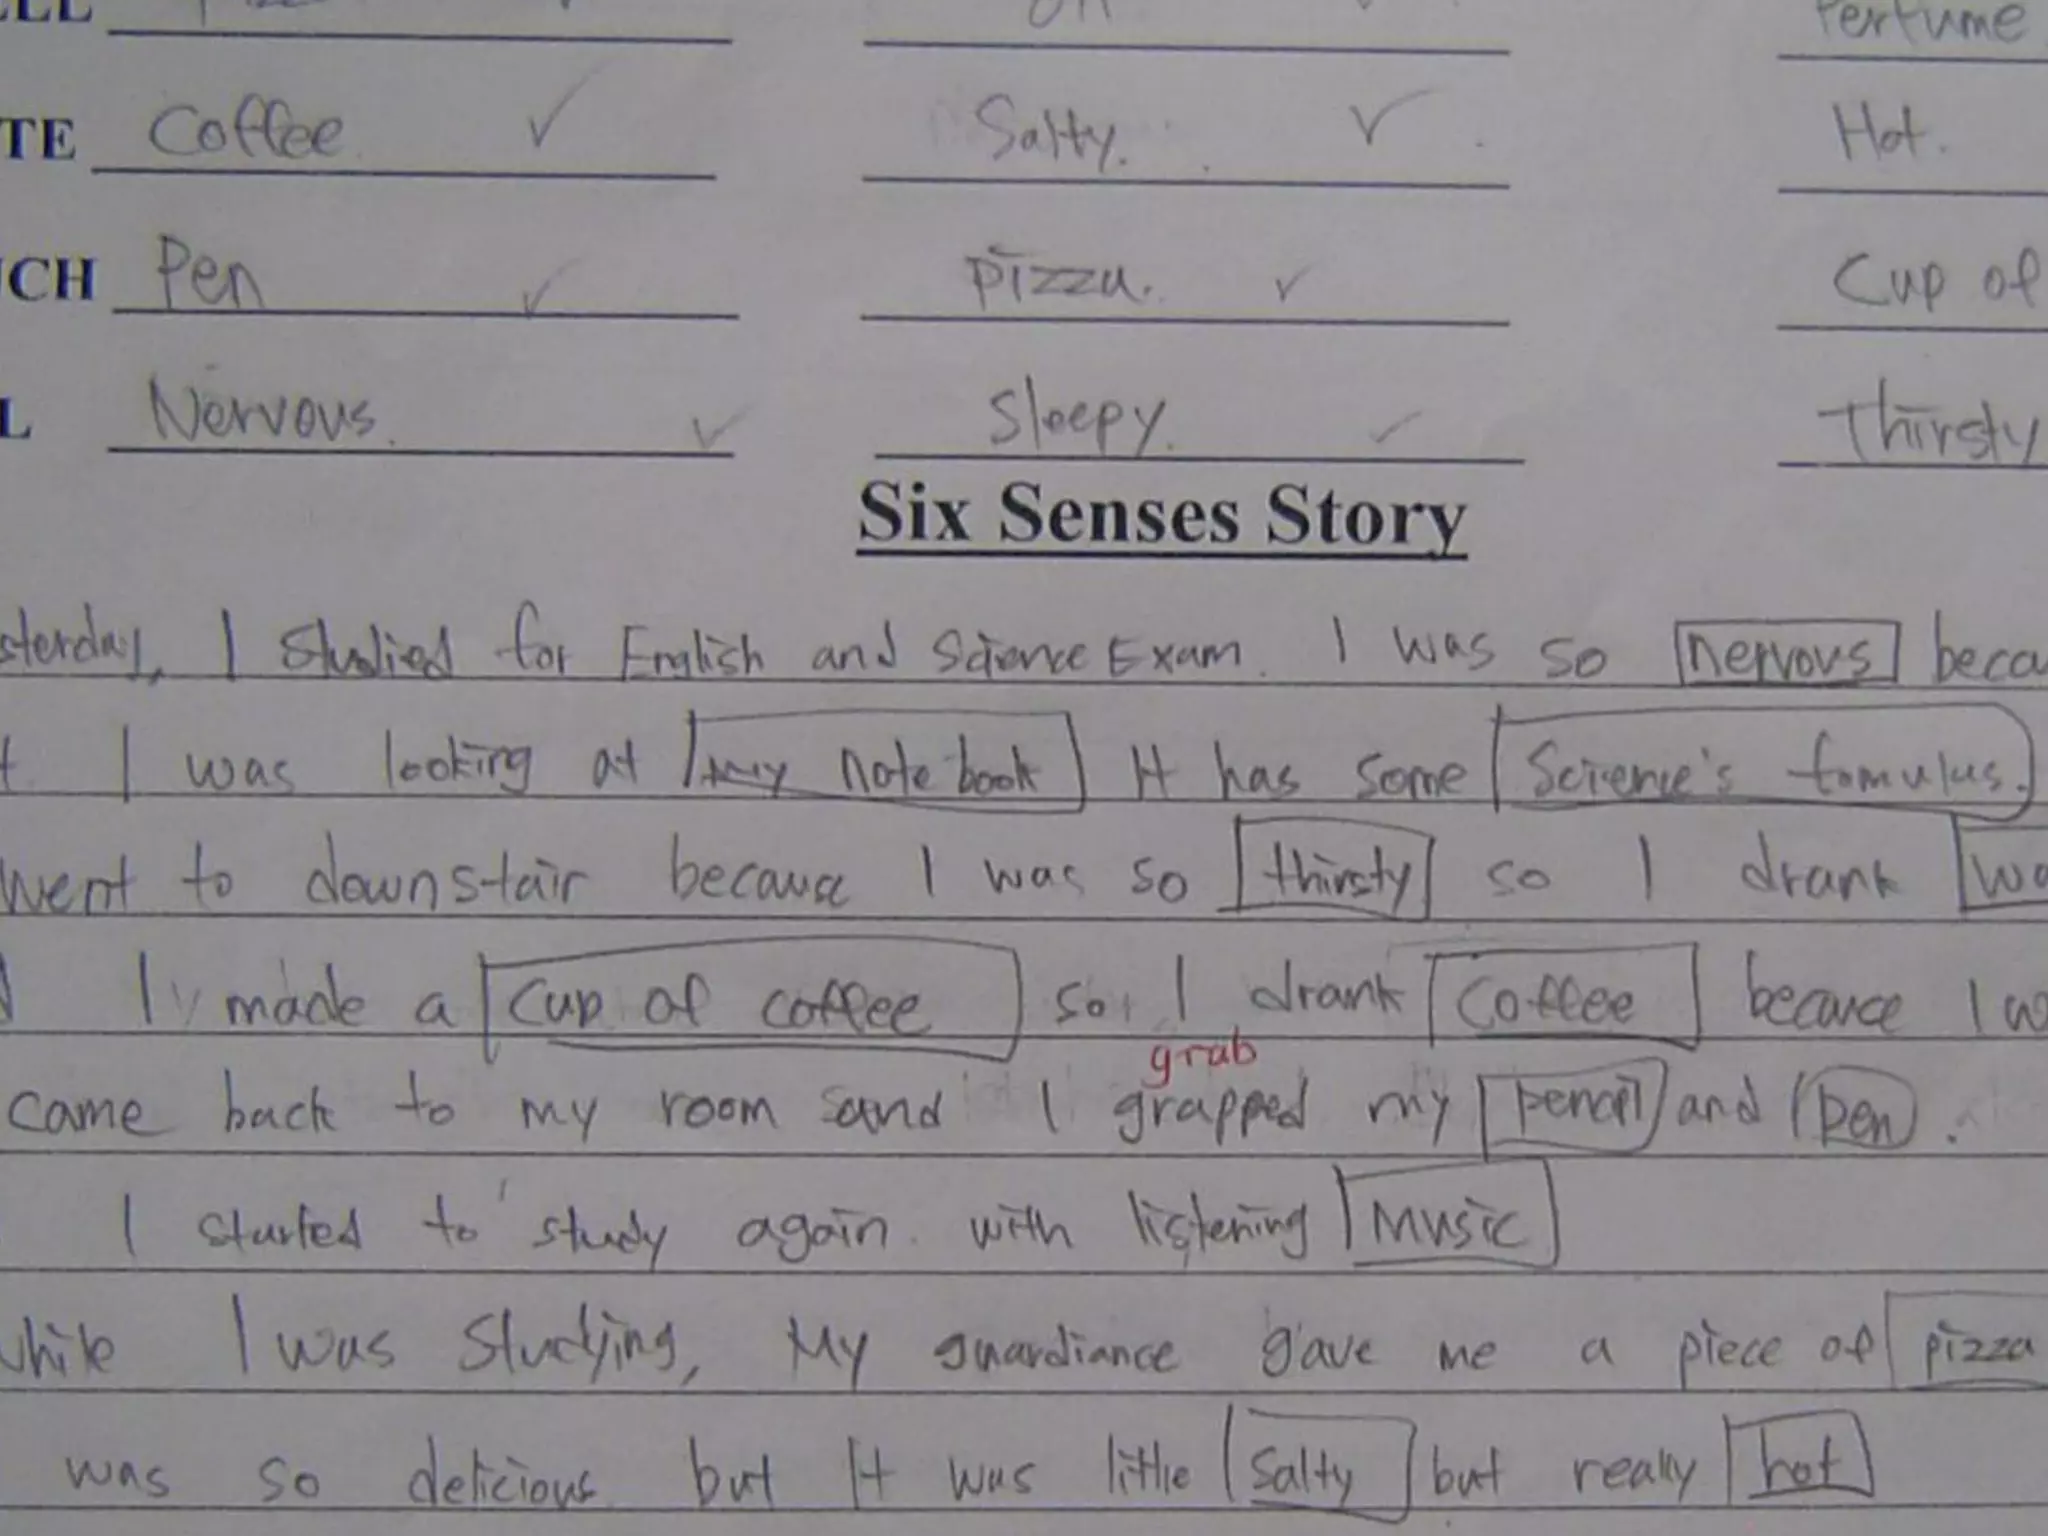 ELL Oil Perfume
TE Coffee ✓ Salty. ✓ Hot.
UCH Pen ✓ Pizza. ✓ Cup of
L Nervous. ✓ Sleepy. ✓ Thirsty
Six Senses Story
sterday, I studied for English and Science Exam. I was so nervous beca
t I was looking at my note book It has some Science's fomulus.
went to downstair because I was so thirsty so I drank wa
I made a cup of coffee so I drank coffee because I w
grab
came back to my room and I grapped my pencil and pen.
I started to study again with listening music
while I was studying, My guardiance gave me a piece of pizza
was so delicious but It was little salty but really hot